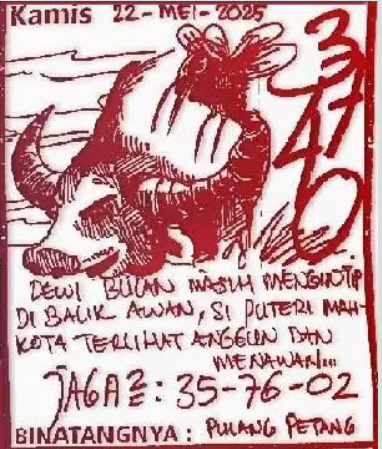 Kamis 22-MEI-2025
3740
DEWI BULAN MASIH MENGINTIP
DI BALIK AWAN, SI PUTERI MAH-
KOTA TERLIHAT ANGGUN DAN
MENAWAN...
JAGA2 : 35-76-02
BINATANGNYA : PULANG PETANG